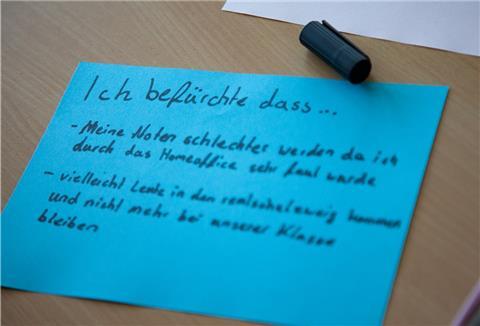 Ich befürchte dass...
- Meine Noten schlechter werden da ich
durch das Homeoffice sehr faul wurde
- vielleicht Leute in den realschulzweig kommen
und nicht mehr bei unserer Klasse
bleiben